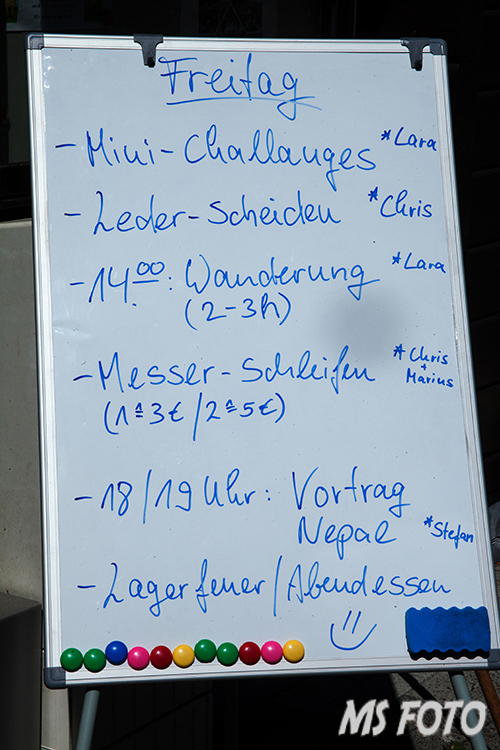 Freitag
- Mini-Challanges *Lara
- Leder-Scheiden *Chris
- 14.00: Wanderung *Lara
(2-3h)
- Messer-Schleifen *Chris + Marius
(1≙3€/2≙5€)
- 18/19 Uhr: Vortrag
Nepal *Stefan
- Lagerfeuer/Abendessen
MS FOTO